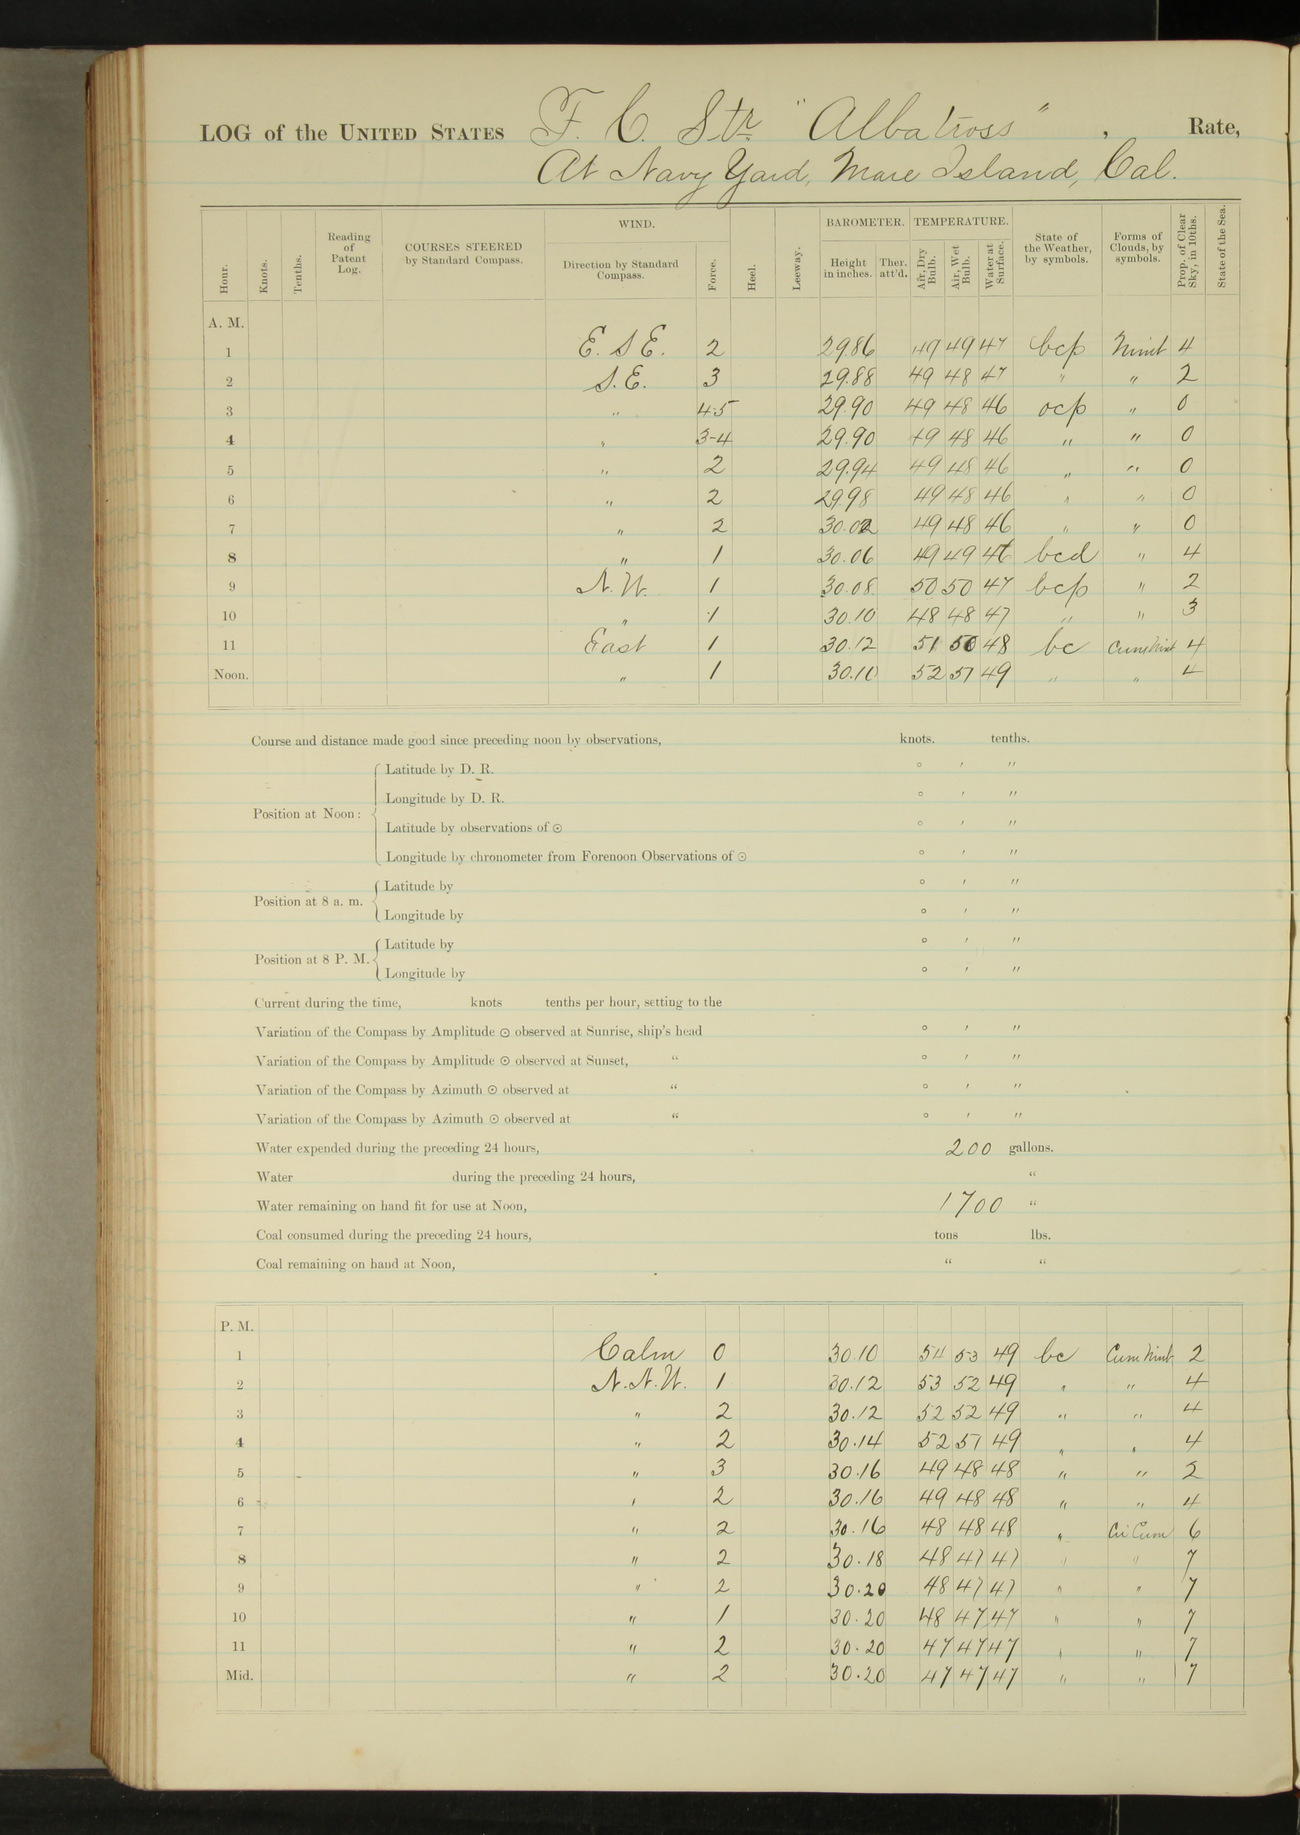 LOG of the UNITED STATES F. C. Str "Albatross", Rate,
At Navy Yard, Mare Island, Cal.
Hour. Knots. Tenths. Reading of Patent Log. COURSES STEERED by Standard Compass. WIND. Direction by Standard Compass. Force. Heel. Leeway. BAROMETER. Height in inches. Ther. att'd. TEMPERATURE. Air, Dry Bulb. Air, Wet Bulb. Water at Surface. State of the Weather, by symbols. Forms of Clouds, by symbols. Prop. of Clear Sky, in 10ths. State of the Sea.
A. M.
1 E. S E. 2 29.86 49 49 47 bcp Nimb 4
2 S. E. 3 29.88 49 48 47 " " 2
3 " 4-5 29.90 49 48 46 ocp " 0
4 " 3-4 29.90 49 48 46 " " 0
5 " 2 29.94 49 48 46 " " 0
6 " 2 29.98 49 48 46 " " 0
7 " 2 30.02 49 48 46 " " 0
8 " 1 30.06 49 49 46 bcd " 4
9 N. W. 1 30.08 50 50 47 bcp " 2
10 " 1 30.10 48 48 47 " " 3
11 East 1 30.12 51 50 48 bc Cum Nimb 4
Noon. " 1 30.10 52 51 49 " " 4
Course and distance made good since preceding noon by observations, knots. tenths.
Position at Noon: Latitude by D. R. ° ′ ″
Longitude by D. R. ° ′ ″
Latitude by observations of ⊙ ° ′ ″
Longitude by chronometer from Forenoon Observations of ⊙ ° ′ ″
Position at 8 a. m. Latitude by ° ′ ″
Longitude by ° ′ ″
Position at 8 P. M. Latitude by ° ′ ″
Longitude by ° ′ ″
Current during the time, knots tenths per hour, setting to the
Variation of the Compass by Amplitude ⊙ observed at Sunrise, ship's head ° ′ ″
Variation of the Compass by Amplitude ⊙ observed at Sunset, " ° ′ ″
Variation of the Compass by Azimuth ⊙ observed at " ° ′ ″
Variation of the Compass by Azimuth ⊙ observed at " ° ′ ″
Water expended during the preceding 24 hours, 200 gallons.
Water during the preceding 24 hours, "
Water remaining on hand fit for use at Noon, 1700 "
Coal consumed during the preceding 24 hours, tons lbs.
Coal remaining on hand at Noon, " "
P. M.
1 Calm 0 30.10 54 53 49 bc Cum Nimb 2
2 N. N. W. 1 30.12 53 52 49 " " 4
3 " 2 30.12 52 52 49 " " 4
4 " 2 30.14 52 51 49 " " 4
5 " 3 30.16 49 48 48 " " 2
6 " 2 30.16 49 48 48 " " 4
7 " 2 30.16 48 48 48 " Ci Cum 6
8 " 2 30.18 48 47 47 " " 7
9 " 2 30.20 48 47 47 " " 7
10 " 1 30.20 48 47 47 " " 7
11 " 2 30.20 47 47 47 " " 7
Mid. " 2 30.20 47 47 47 " " 7